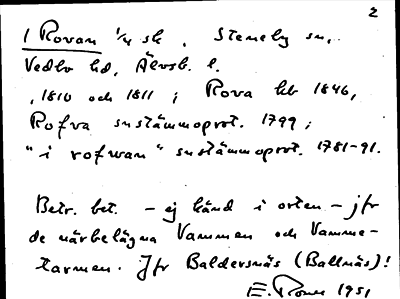 2
I Rovan 1/4 sk, Steneby sn,
Vedbo hd, Älvsb. l.
, 1810 och 1811; Rova hb 1846,
Rofva sustämmoprot. 1799;
"i rofwan" sustämmoprot. 1781-91.
Betr. bet. - ej känd i orten - jfr
de närbelägna Vammen och Vamme-
tarmen. Jfr Baldersnäs (Ballnäs)!
1951